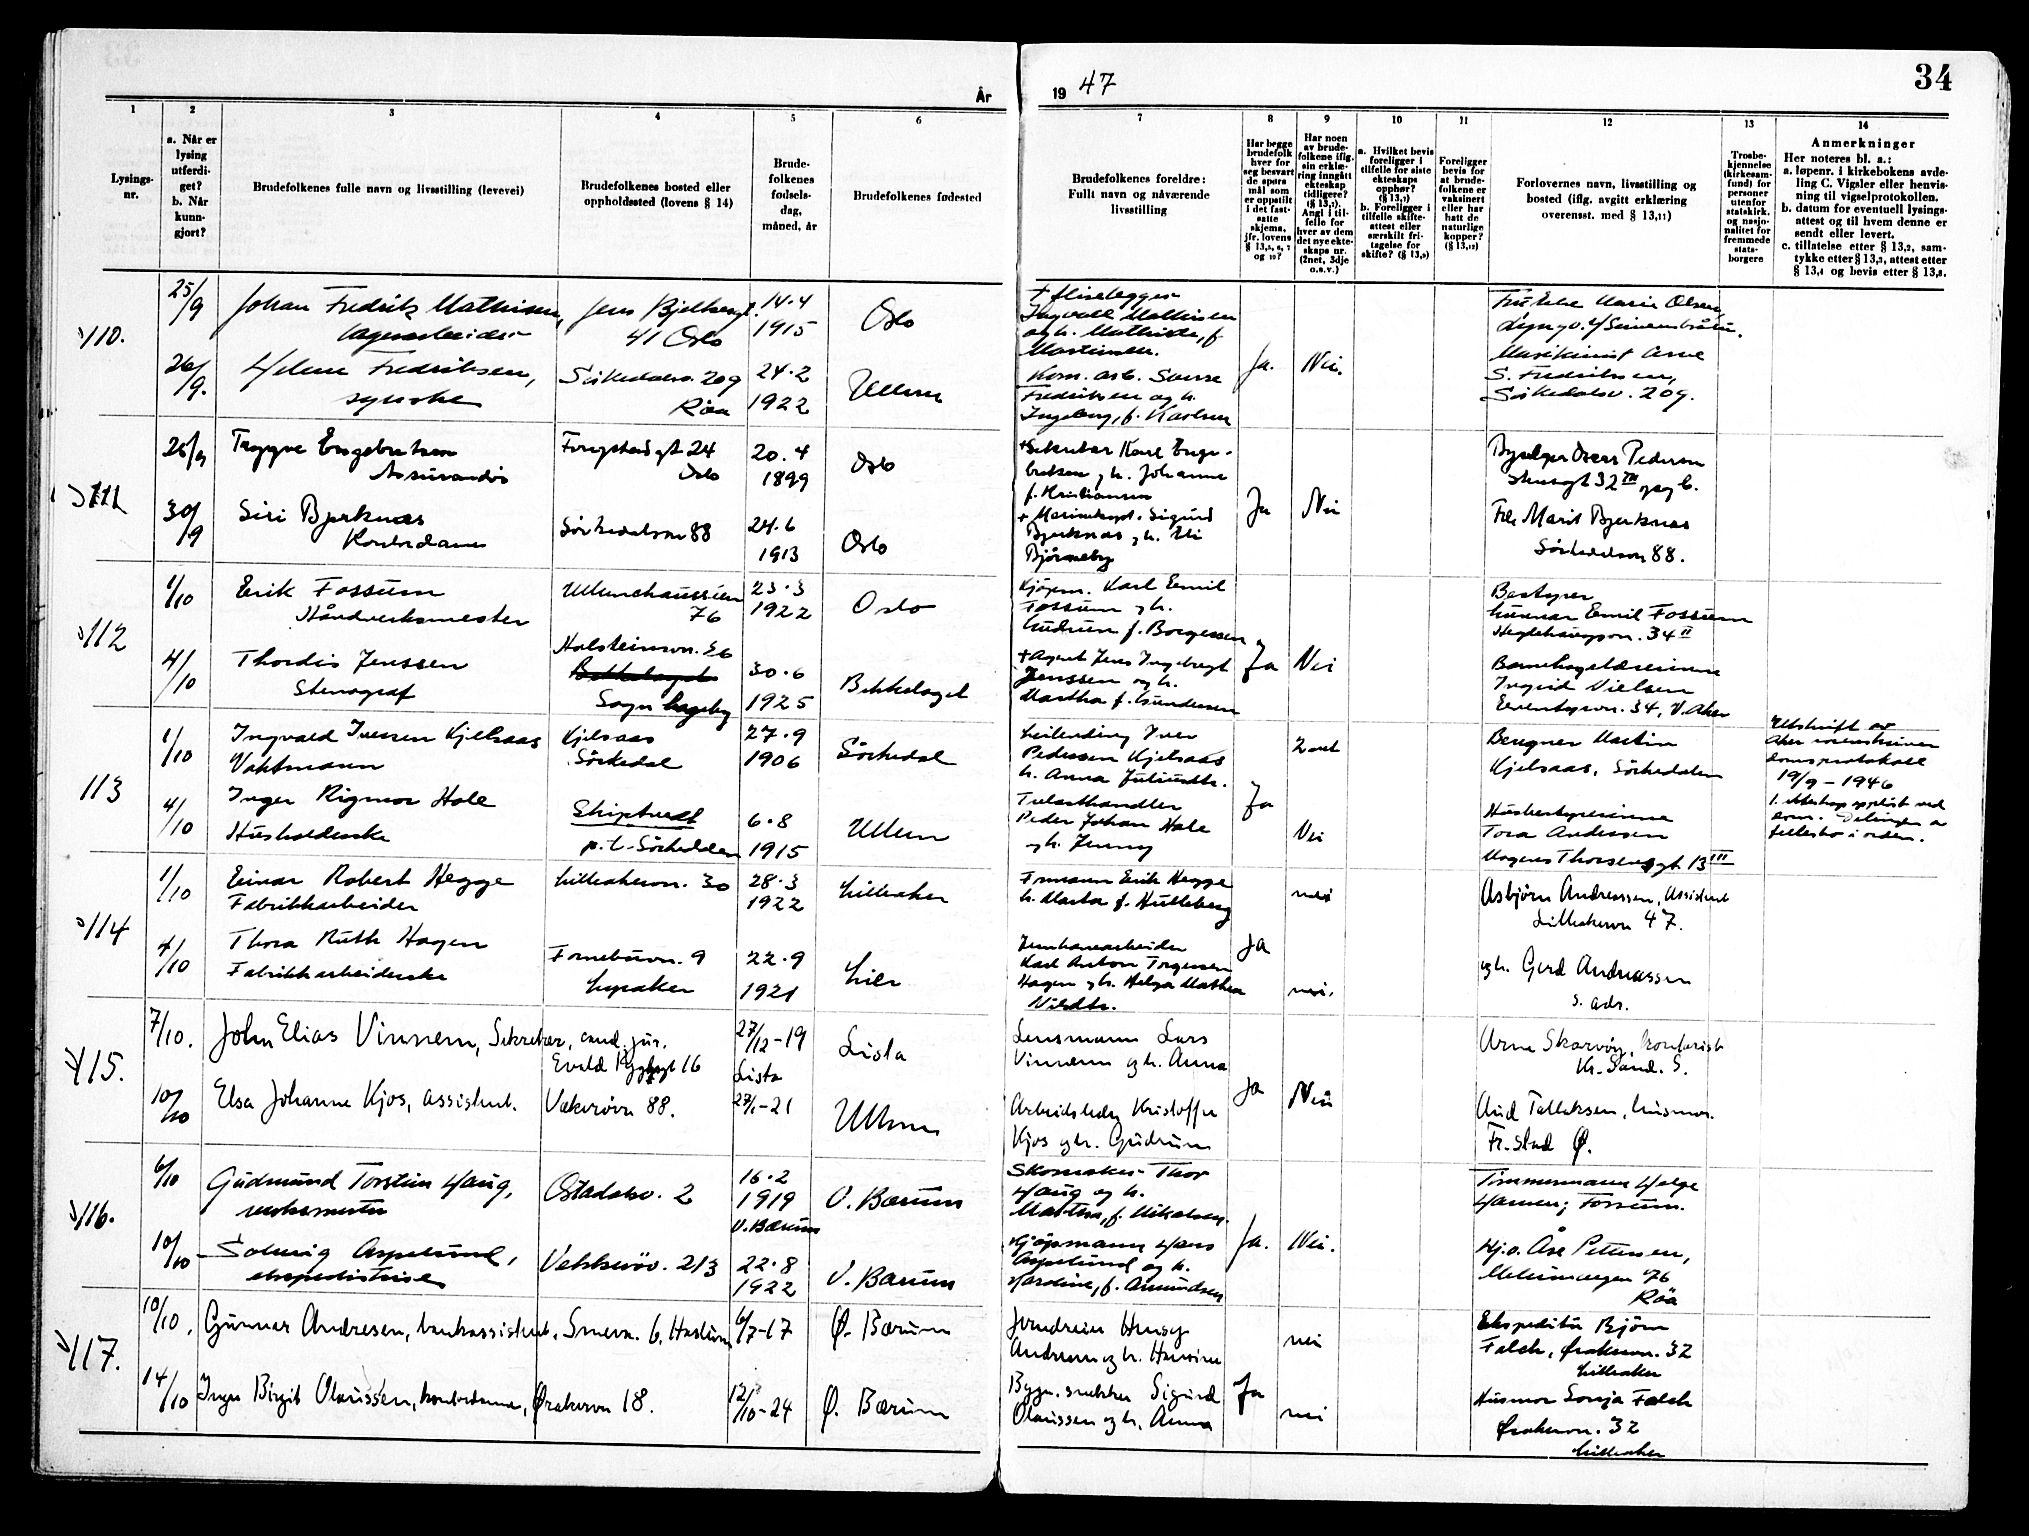 År 1947
34
1 2 3 4 5 6 7 8 9 10 11 12 13 14
Lysings-
nr.
a. Når er
lysing
utferdi-
get?
b. Når
kunn-
gjort?
Brudefolkenes fulle navn og livsstilling (levevei)
Brudefolkenes bosted eller
oppholdssted (lovens § 14)
Brude-
folkenes
fødsels-
dag,
måned, år
Brudefolkenes fødested
Brudefolkenes foreldre:
Fullt navn og nåværende
livsstilling
Har begge
brudefolk
hver for
seg besvart
de spørs
mål som
er oppstilt
i det fast-
satte
skjema,
jfr. lovens
Har noen
av brude-
folkene iflg.
sin erklæ-
ring inngått
ekteskap
tidligere?
(§ 13,7).
Angi i til-
felle for
hver av dem
det nye ekte-
skaps nr.
(2net, 3dje
o.s.v.)
a. Hvilket bevis
foreligger i
tilfelle for siste
ekteskaps
opphør?
(§ 13,7)
b. Foreligger i
tilfelle skifte-
attest eller
særskilt fri-
tagelse for
skifte? (§ 13,9)
Foreligger
bevis for
at brude-
folkene er
vaksinert
eller har
hatt de
naturlige
kopper?
(§ 13,12)
Forlovernes navn, livsstilling og
bosted (iflg. avgitt erklæring
overensst. med § 13,11)
Trosbe-
kjennelse
(kirkesam-
fund) for
personer
utenfor
statskirk.
og nasjo-
nalitet for
fremmede
stats-
borgere
Anmerkninger
Her noteres bl. a.:
a. løpenr. i kirkebokens avde-
ling C. Vigsler eller henvis-
ning til vigselprotokollen.
b. datum for eventuell lysings-
attest og til hvem denne er
sendt eller levert.
c. tillatelse etter § 13,2, sam-
tykke etter § 13,3, attest etter
§ 13,4 og bevis etter § 13,8.
110.
25/9
Johan Fredrik Mathisen,
lagerarbeider
Jens Bjelkesgt.
41 Oslo
14.4
1915
Oslo
+ fliselegger
Ingvall Mathisen
og h. Mathilde, f.
Martinsen.
26/9.
Helene Fredriksen,
syerske
Sørkedalsv. 209
Røa
24.2
1922
Ullern
Fredriksen og h.
Ingeborg, f. Karlsen
Ja.
Nei.
S. Fredriksen,
Sørkedalsv. 209.
111
26/9
Trygve Engebretsen
Assurandør
24
Oslo
20.4
1899
Oslo
+ Sekretær Karl Enge-
bretsen og h. Johanne
f. Kristiansen
30/9
Siri Bjerknæs
Kontordame
Sørkedalsvn 88
24.6
1913
Oslo
Sigurd
Bjerknæs og h.
Bjørneby
Ja
Nei
Oscar Pedersen
Frk Marit Bjerknæs
Sørkedalsvn 88.
112
1/10
Erik Fossum
Håndverksmester
Ullernchausséen
76
23.3
1922
Oslo
Kjøpm. Karl Emil
Fossum og h.
Gudrun f. Borgessen
4/10
Thordis Jenssen
Stenograf
Holsteinvn.
Sogn hageby
30.6
1925
Bekkelaget
+ Agent Jens Ingebregt
Jenssen og h.
Martha f. Gundersen
Ja
Nei
Bestyrer
Gunnar Emil Fossum
34 II
Barnehagelærerinne
Ingrid Nielsen
Eventyrvn. 34, V. Aker
113
1/10
Ingvald Iversen Kjelsaas
Vaktmann
Kjelsaas
Sørkedal
27.9
1906
Sørkedal
Leilending Iver
Pedersen Kjelsaas
h. Anna Juliusdtr.
2net
4/10
Inger Rigmor Hole
Husholderske
Skiptvedt
p.t. Sørkedalen
6.8
1915
Ullern
Trelasthandler
Peder Johan Hole
og h. Jenny
Ja
Nei
Bergner Martin
Kjelsaas, Sørkedalen
Husbestyrerinne
Tora Andersen
Mogens Thorsensgt 13 III
Utskrift av
domsprotokoll
19/9 - 1946
1. ekteskap oppløst ved
dom.
fellesbo i orden.
114
1/10
Einar Robert Hegge
Fabrikkarbeider
Lilleakervn. 30
28.3
1922
Lilleaker
Formann Erik Hegge
h. Marta f. Hulleberg
nei
4/10
Thora Ruth Hagen
Fabrikkarbeiderske
Fornebuvn. 9
Lysaker
22.9
1921
Lier
Jernbanearbeider
Karl Anton Torgersen
Hagen og h. Helga Mathea
Nilsdtr.
Ja
nei.
Asbjørn Andreassen, Assistent
Lilleakervn 47.
og h. Gerd Andreassen
s. adr.
115.
7/10.
John Elias Vinnem, Sekretær, cand. jur.
16
27/12-19
Lista
Lista
Lensmann Lars
Vinnem og h. Anna
10/10
Elsa Johanne Kjos, assistent.
Vækerøvn 88.
27/1-21
Ullern
Kristoffer
Kjos og h. Gudrun
Ja
Nei
Arne Skarvøy, kontorist
Kr.Sand. S.
Aud Tallaksen, husmor.
Fr.stad Ø.
116.
6/10
Gudmund Torstein Haug,
verksmester
Ostadalsv. 2
16.2
1919
V. Bærum
V. Bærum
Skomaker Thor
Haug og h.
Martha, f. Mikalsen.
10/10
Solveig Aspelund,
ekspeditrise
Vækkerøv. 213
22.8
1922
V. Bærum
Kjøpmann Hans
Aspelund og h.
f. Amundsen
Ja.
Nei.
Tømmermann Helge
Hansen, Fossum.
Hj.v. Åse Pettersen,
76
Røa
117.
10/10.
Gunnar Andresen, bankassistent,
6/7-17
Ø. Bærum
nei
14/10
Inger Birgit Olaussen, kontordame,
Ørakervn 18.
12/10-24
Ø. Bærum
Bygn.snekker Sigurd
Olaussen og h. Anna
Ja
nei
Ekspeditør Bjørn
Falch, Ørakervn. 32
Lilleaker
Husmor Sonja Falch
Ørakervn. 32
Lilleaker